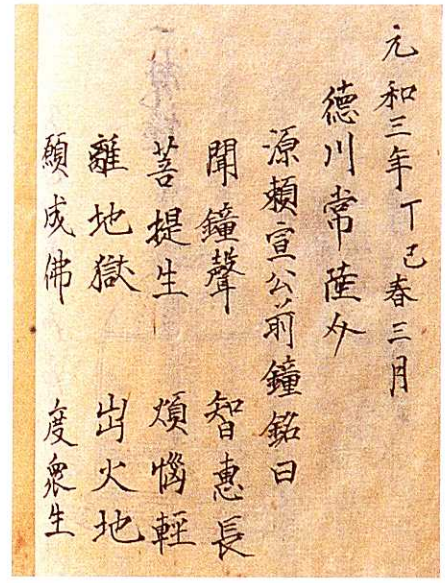 元和三年丁巳春三月
德川常陸介
源頼宣公前鐘銘曰
聞鐘聲 智惠長
菩提生 煩惱輕
離地獄 出火地
願成佛 度衆生